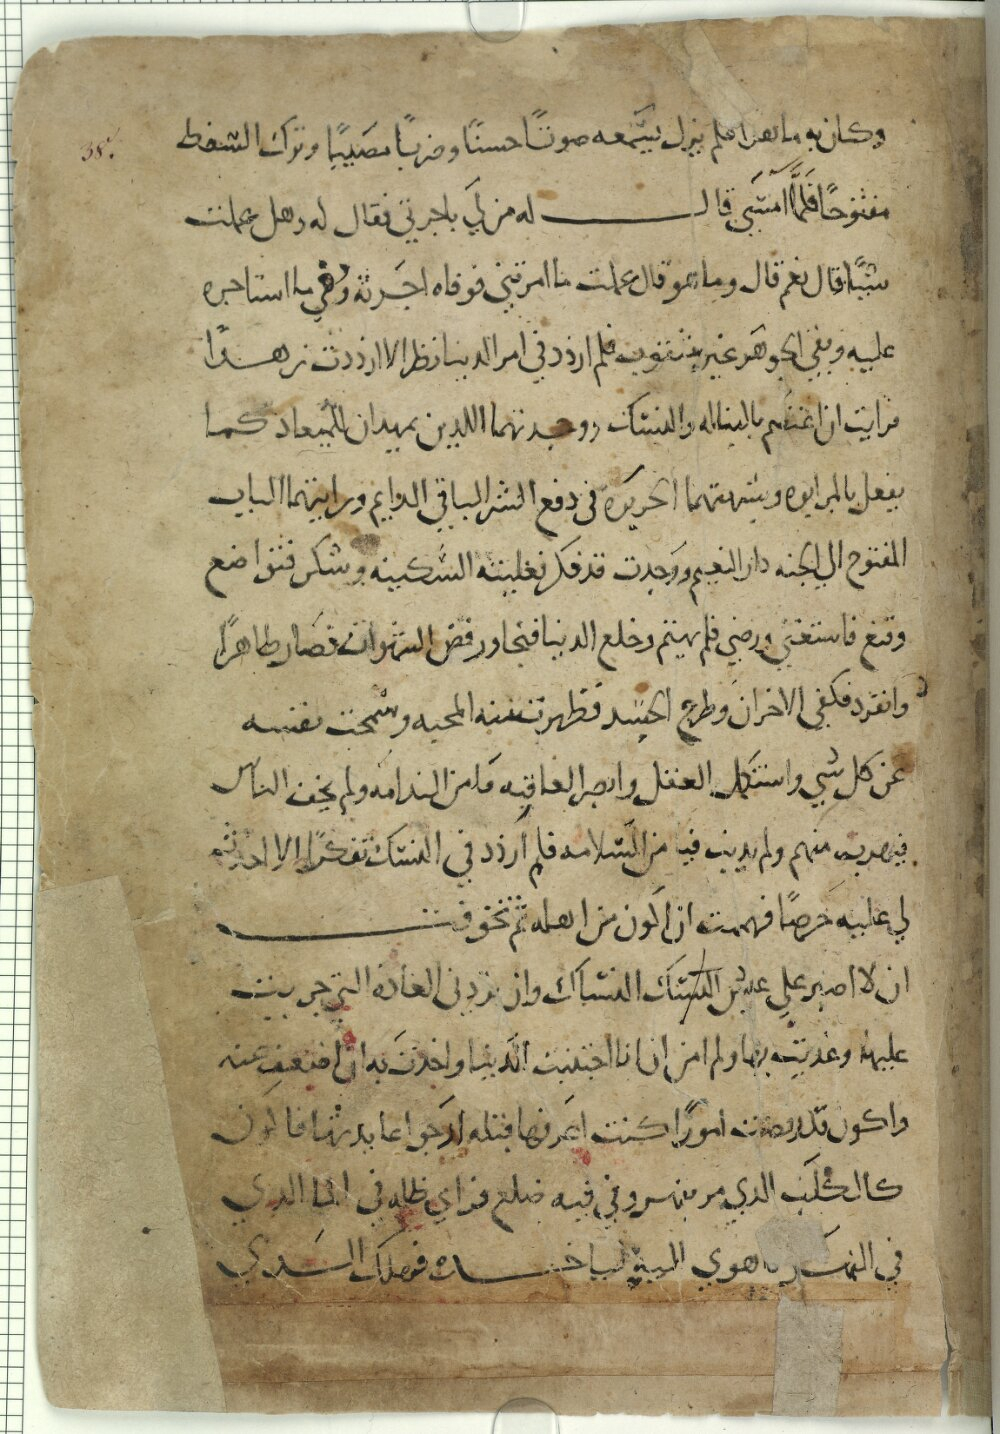 38.
وكان به ماهرا فلم يزل يسمعه صوتًا حسنًا وضربًا مصيبًا وترك السفط
مفتوحًا فلمَّا امسَي قالــــــــــــــــ له مر لي باجرتي فقال له وهل عملت
شيًا قال نعم قال وما هو قال عملت ما امرتني فوفاه اجرته وهي ما استاجره
عليه وبقي الجوهر غير مثقوب فلم ازدد في امر الدنيا نظرا الا ازددت زهدًا
فرايت ان اعتصم بالميناله والنسك ووجدتهما اللذين يمهدان للمعاد كما
يفعل بالمرايوه وشبهتهما الحريزه في دفع الشر الباقي الدايم ورايتهما الباب
المفتوح الي الجنه دار النعيم ووجدت قد فكر فغلبته السَّكينه وشكر فتواضع
وقنع فاستغني ورضي فلم يهتم وخلع الدنيا فنجا ورفض الشهوات فصار طاهرًا
وانفرد فكفي الاحزان وطرح الحسد فظهرت منه المحبه وسمحت نفسه
عن كل شي واستكمل العقل وابصر العاقبه فامن الندامه ولم يخف الناس
فيهرب منهم ولم يذنب فيا من السَّلامه فلم ازدد في النسك تفكرًا الا احدث
لي عليه حرصًا فهممت ان اكون من اهله ثم تخوفتــــــــــ
ان لا اصبر علي عيش النسك النساك وان تردني العادة التي جريت
عليها وغذيت بها ولم امن ان انا اجتنبت الدنيا واخذت به ان اضعف عنه
واكون قد رفضت امورًا كنت اعرفها قبله ارجوا عايدتها فاكون
كالكلب الذي مر بنهر وفي فيه ضلع فراي ظله في الما الذي
في النهر فاهوي اليه لياخــــــــــذه فهلك الـــذي